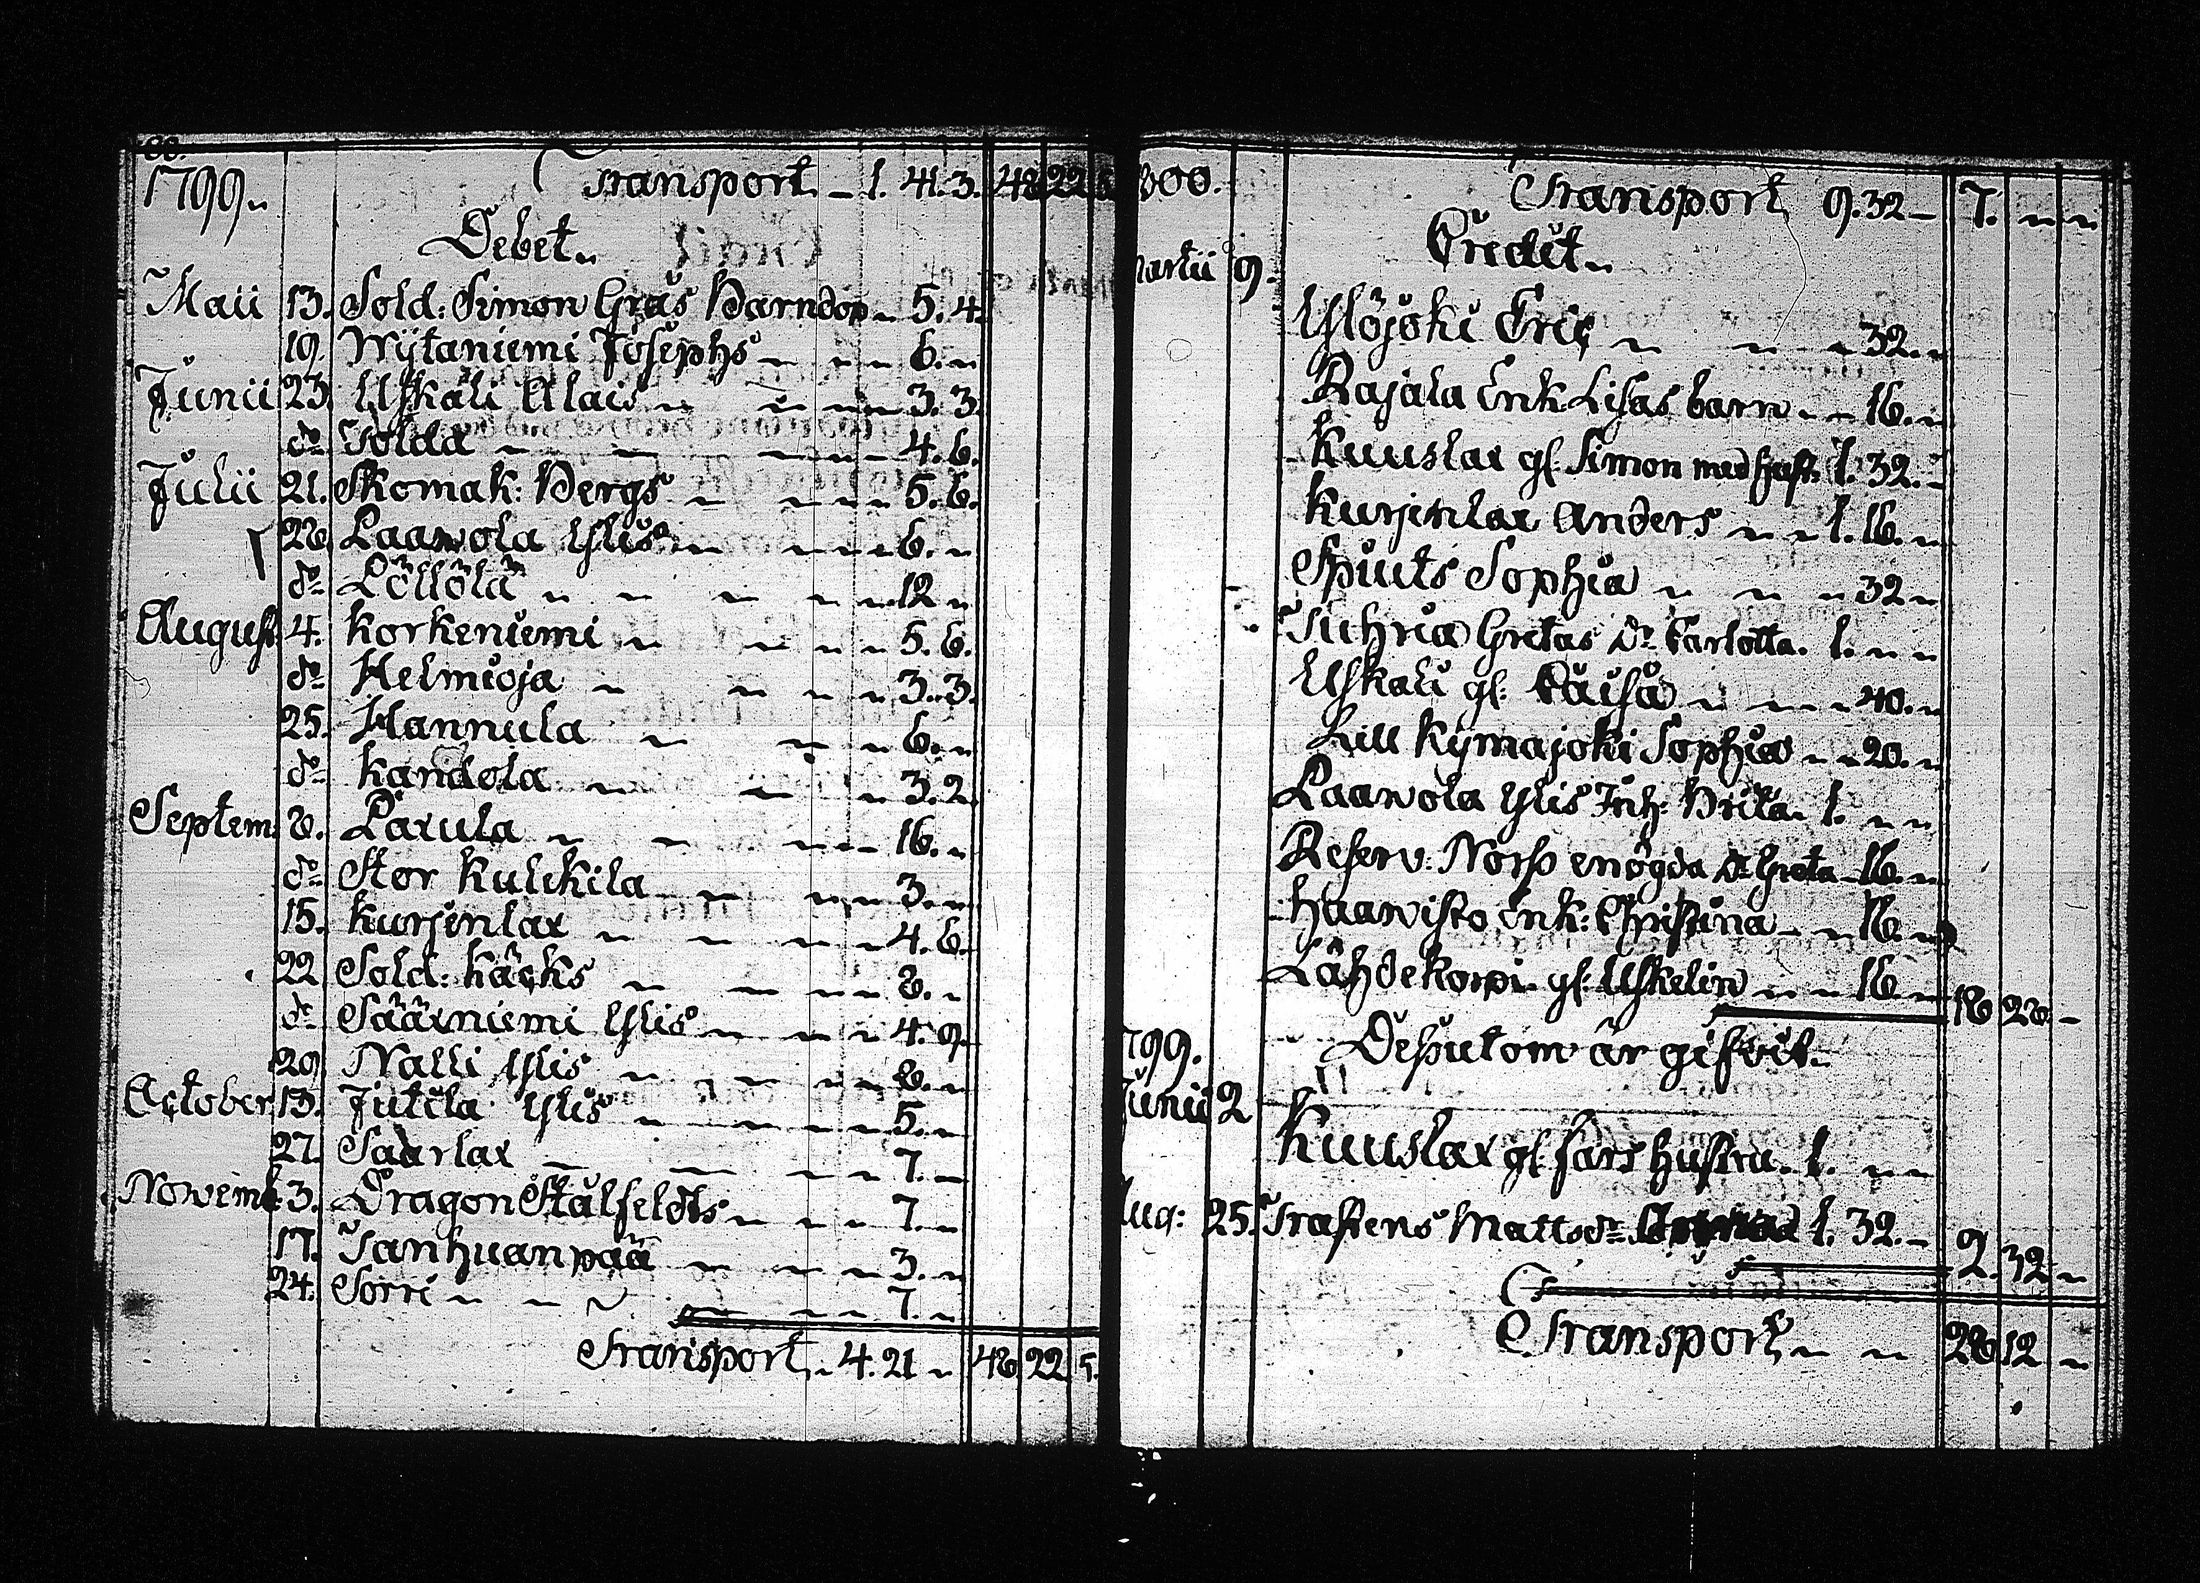 1799.
Transport - 1. 41. 3. 48 22 5
Debet.
Maii 13. Sold: Simon Gräs Barndop 5. 4.
19. Wijtaniemi Josephs 6.
Junii 23. Uskali Alais 3. 3.
do Tolda 4. 6.
Julii 21. Skomak: Bergs 5. 6.
28. Laawola Ylis 6.
do Löllölä 12
August. 4. Korkeniemi 5. 6.
do Helmioja 3. 3.
25. Hannula 6.
do Kandola 3. 2.
Septem: 8. Laxula 16.
do Stor Kulckila 3.
15. Kurjenlax 4. 6.
22 Sold: Käcks 8.
do Säärniemi Ylis 4. 9.
29 Nalli Ylis 8.
October 13. Jutila Ylis 5.
27. Saarlax 7.
Novemb 3. Dragon Stålfeldts 7.
17. Tanhuanpää 3.
24. Torri 7.
Transport 4. 21 48 22 5.
1800.
Transport 9. 32 - 7.
Credit.
Martii 9.
Ylöjoki Eric 32.
Rajala Enk: Lisas barn 16.
Kuuslax gl. Simon med hust: 1. 32.
Kurjenlax Anders 1. 16.
Sputs Sophia 32
Tuhria Gretas Dr Carlotta. 1.
Uskali gl: Caisa 40.
Lill Kymajoki Sophia 20.
Laawola Ylis Inh: Brita 1.
Reserv: Norss enögda Dr Greta 16.
Haawisto Enk: Christina 16.
Lähdekorpi gl: Eskelin 16.
18 28 -
Dessutom är gifvit.
1799.
Junii 2
Kuuslax gl. fars hustru. 1.
Aug: 25. Trastens Matts dr 1. 32. -
2. 32
Transport 28 12